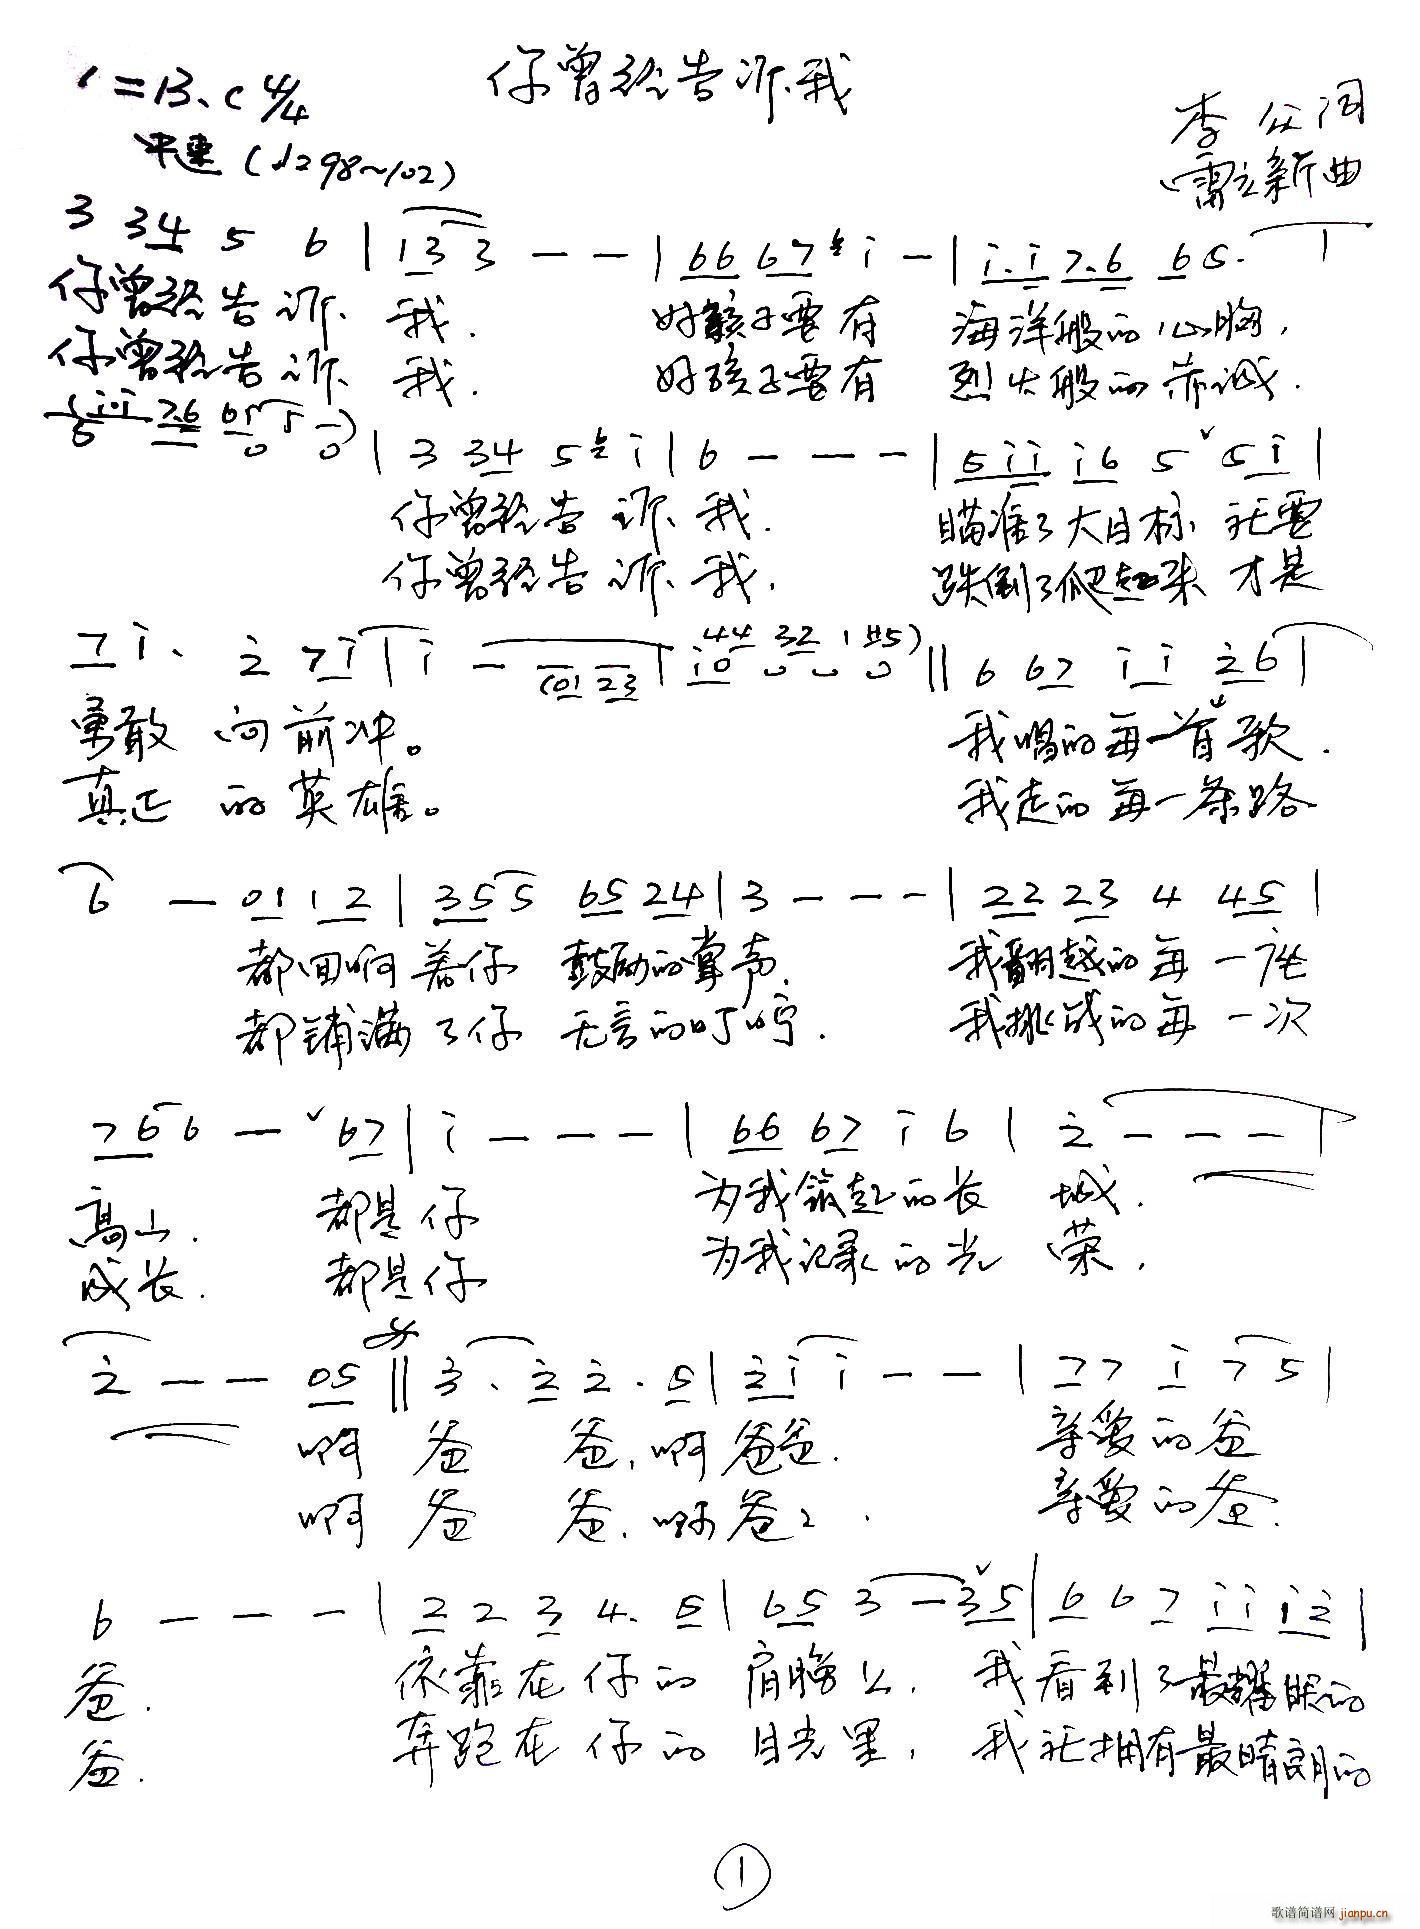 你曾经告诉我
1=B、C 4/4
中速(♩=98~102)
李 众 词
雷立新 曲
3 34 5 6 | 133 - - | 66 67 i - | i.i 7.6 65. |
你曾经告诉 我. 好孩子要有 海洋般的心胸,
你曾经告诉 我. 好孩子要有 烈火般的赤诚.
| 3 34 5 i | 6 - - - | 5ii i6 5 5i |
你曾经告诉 我. 瞄准了大目标 就要
你曾经告诉 我. 跌倒了爬起来 才是
7i. 2 7i | i - (01 23 | i0 44 32 1 #5) || 6 67 i i 26 |
勇敢 向前冲。 我唱的每一首歌.
真正 的英雄。 我走的每一条路
6 - 01 12 | 355 65 24 | 3 - - - | 22 23 4 45 |
都回响着你 鼓励的掌声. 我翻越的每一座
都铺满了你 无言的叮咛. 我挑战的每一次
766 - 67 | i - - - | 66 67 i 6 | 2 - - - |
高山. 都是你 为我筑起的长 城.
成长. 都是你 为我记录的光 荣.
2 - - 05 || 3. 2 2. 5 | 2i i - - | 77 i 7 5 |
啊 爸 爸,啊爸爸. 亲爱的爸
啊 爸 爸,啊爸〻. 亲爱的爸.
6 - - - | 2 2 3 4. 5 | 65 3 - 35 | 6 6 7 ii i2 |
爸. 依靠在你的 肩膀上, 我看到了最耀眼的
爸. 奔跑在你的 目光里, 我就拥有最晴朗的
1
歌谱简谱网 jianpu.cn